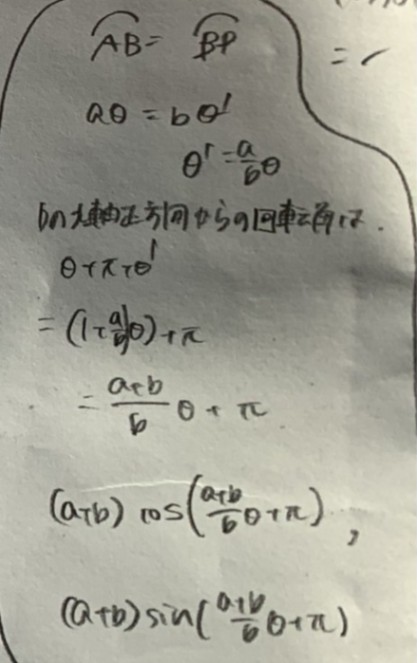 ⌒AB = ⌒BP
aθ = bθ'
θ' = a/b θ
bのx軸正方向からの回転角は.
θ+π+θ'
= (1+a/b)θ)+π
= a+b/b θ + π
(a+b) cos(a+b/b θ+π),
(a+b) sin(a+b/b θ+π)
=